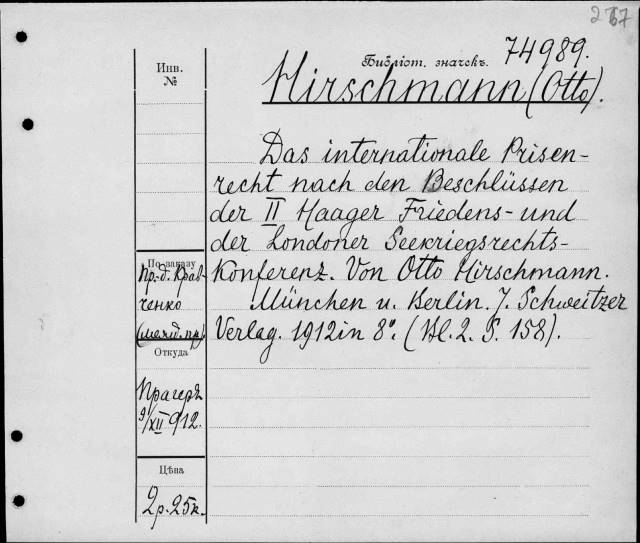 267
Библіот. значекъ. 74989.
Инв.
№
Hirschmann (Otto).
Das internationale Prisen-
recht nach den Beschlüssen
der II Haager Friedens- und
der Londoner Seekriegsrechts-
Konferenz. Von Otto Hirschmann.
München u. Berlin. J. Schweitzer
Verlag. 1912 in 8°. (Bl. 2. S. 158).
По заказу
Пр.-д. Крав-
ченко
(межд. пр.)
Откуда
Прагеръ
9/XII 912.
Цѣна
2 р. 25 к.